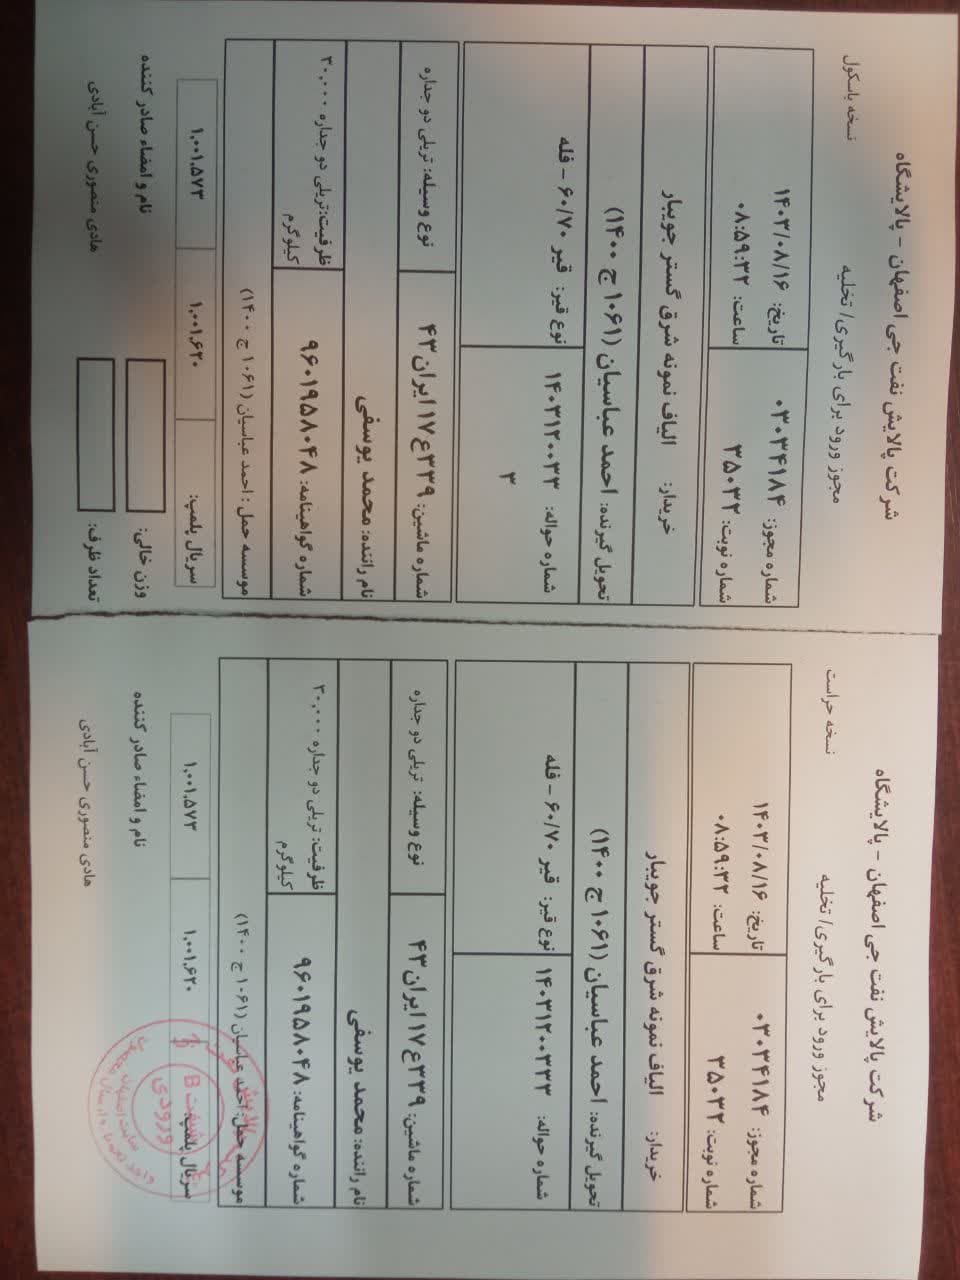 شرکت پالایش نفت جی اصفهان - پالایشگاه
مجوز ورود برای بارگیری/ تخلیه
نسخه باسکول
شماره مجوز: ۰۳۰۳۴۱۸۴
تاریخ: ۱۴۰۳/۰۸/۱۶
شماره نوبت: ۳۵۰۳۲
ساعت: ۰۸:۵۹:۳۲
خریدار: الیاف نمونه شرق گستر جویبار
تحویل گیرنده: احمد عباسیان (۱۰۶۱ ج ۱۴۰۰)
شماره حواله: ۱۴۰۳۱۲۰۰۳۳
۳
نوع قیر: قیر ۶۰/۷۰ - فله
شماره ماشین: ۳۳۹ع۱۷ ایران ۴۳
نوع وسیله: تریلی دو جداره
نام راننده: محمد یوسفی
شماره گواهینامه: ۹۶۰۱۹۵۸۰۴۸
ظرفیت: تریلی دو جداره ۳۰,۰۰۰
کیلوگرم
موسسه حمل: احمد عباسیان (۱۰۶۱ ج ۱۴۰۰)
سریال پلمپ: ۱,۰۰۱,۶۲۰ ۱,۰۰۱,۵۷۳
وزن خالی:
نام و امضاء صادر کننده
تعداد ظرف:
هادی منصوری حسن آبادی
شرکت پالایش نفت جی اصفهان - پالایشگاه
مجوز ورود برای بارگیری/ تخلیه
نسخه حراست
شماره مجوز: ۰۳۰۳۴۱۸۴
تاریخ: ۱۴۰۳/۰۸/۱۶
شماره نوبت: ۳۵۰۳۲
ساعت: ۰۸:۵۹:۳۲
خریدار: الیاف نمونه شرق گستر جویبار
تحویل گیرنده: احمد عباسیان (۱۰۶۱ ج ۱۴۰۰)
شماره حواله: ۱۴۰۳۱۲۰۰۳۳۳
نوع قیر: قیر ۶۰/۷۰ - فله
شماره ماشین: ۳۳۹ع۱۷ ایران ۴۳
نوع وسیله: تریلی دو جداره
نام راننده: محمد یوسفی
شماره گواهینامه: ۹۶۰۱۹۵۸۰۴۸
ظرفیت: تریلی دو جداره ۳۰,۰۰۰
کیلوگرم
موسسه حمل: احمد عباسیان (۱۰۶۱ ج ۱۴۰۰)
سریال پلمپ: ۱,۰۰۱,۶۲۰ ۱,۰۰۱,۵۷۳
نام و امضاء صادر کننده
هادی منصوری حسن آبادی
شیفت B
ورودی